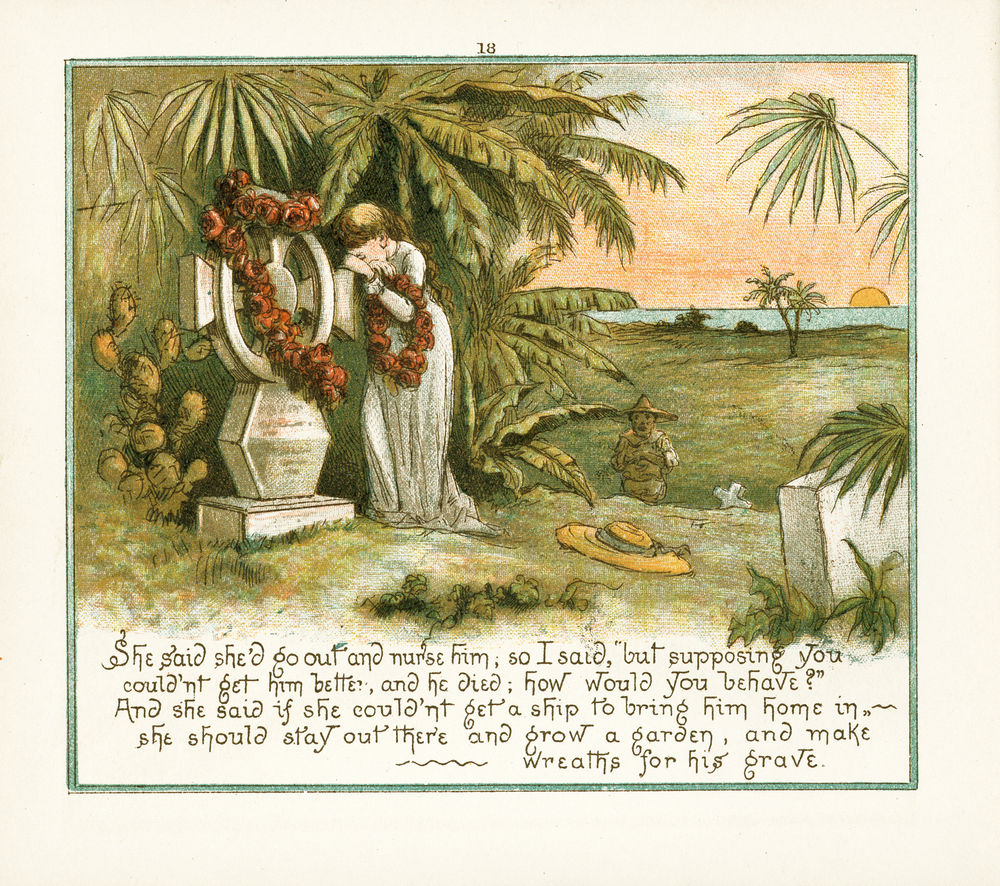 18
She said she'd go out and nurse him; so I said, "but supposing you
could'nt get him better, and he died; how would you behave?"
And she said if she could'nt get a ship to bring him home in,~
she should stay out there and grow a garden, and make
wreaths for his grave.